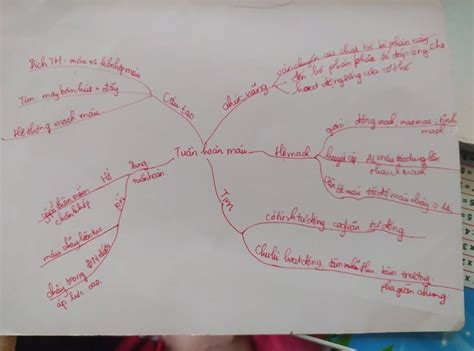 Tuần hoàn máu
Cấu tạo
Dịch TH: máu và hỗn hợp máu
Tim: máy bơm hút + đẩy
Hệ thống mạch máu
chức năng
vận chuyển các chất từ bộ phận này
đến bộ phận khác để đáp ứng cho
hoạt động sống của cơ thể
Hệ mạch
gồm: động mạch, mao mạch, tĩnh
mạch
huyết áp
máu tác dụng lên
mạch
Vận tốc máu: tốc độ máu chảy
Tim
có tính tự động
Chu kì hoạt động
pha giãn chung
dạng
tuần hoàn
Hở
Kín
máu chảy liên tục
chảy trong
áp lực cao